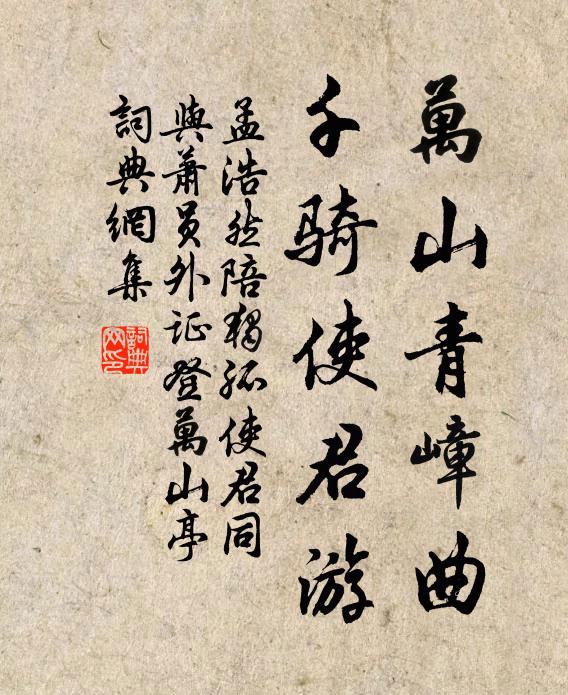 萬山青嶂曲
千骑使君游
孟浩然陪獨孤使君同
與蕭員外证登萬山亭
詞典網集
詞典网印